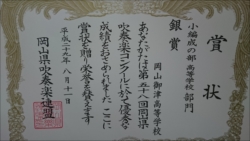 賞状
小編成の部 高等学校部門
銀賞
岡山御津高等学校
あなたがたは第五十八回岡山県
吹奏楽コンクールにおいて優秀な
成績をおさめられました ここに
賞状を贈り栄誉を讃えます
平成二十九年八月十一日
岡山県吹奏楽連盟